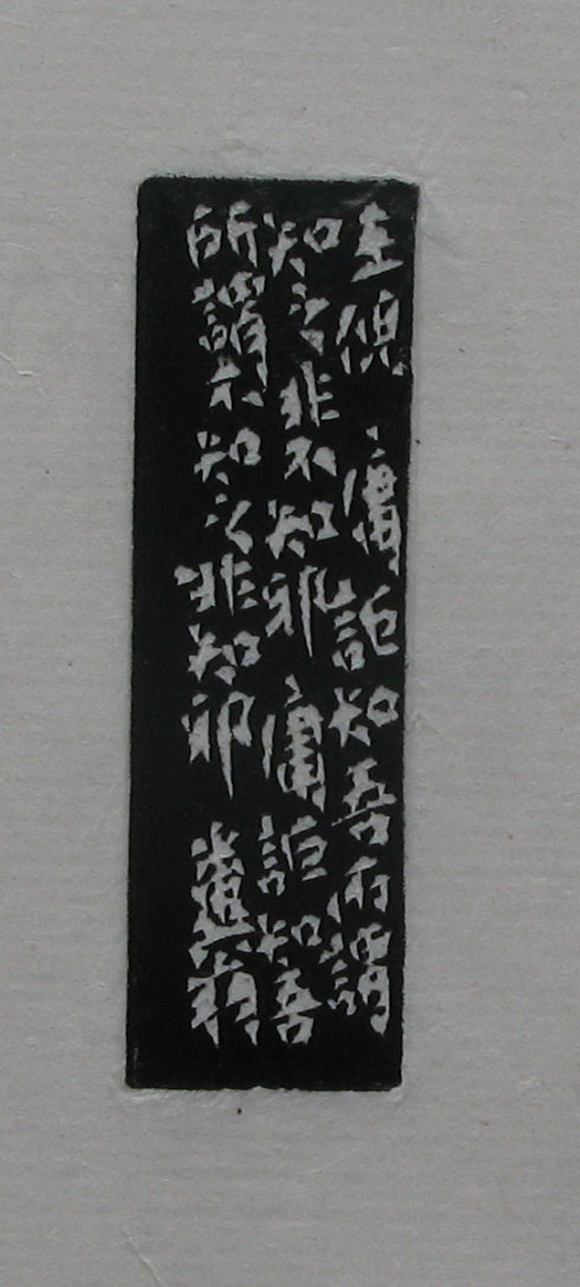 王倪 庸詎知吾所謂
知之非不知邪 庸詎知吾
所謂不知之非知邪 翁